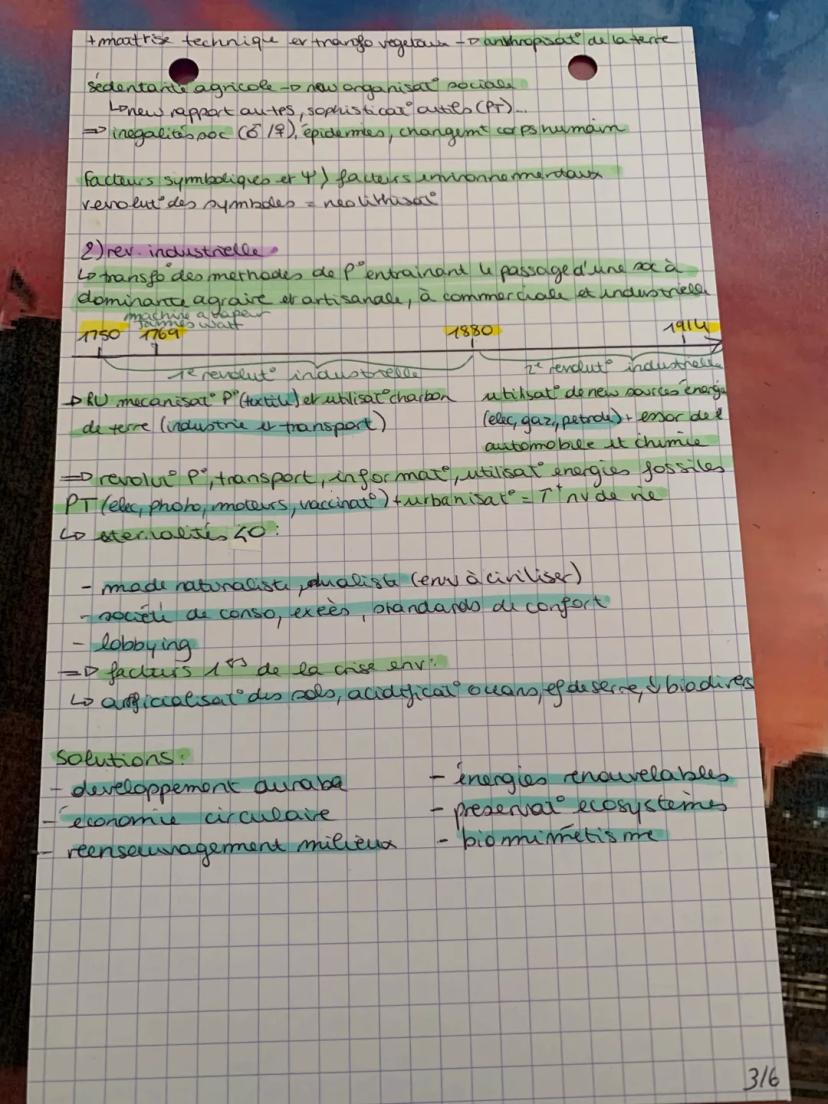 + maitrise technique et transfo vegetaux → anthropisat° de la terre
sédentarité agricole → new organisat° sociale
↳ new rapport autes, sophisticat° outils (PT)...
⇒ inégalités soc (♂/♀), épidemies, changemt corps humain
facteurs symboliques et Ψ) facteurs environnementaux
revolut° des symboles = neolithisat°
2) rev. industrielle
↳ transfo des methodes de P° entrainant le passage d'une soc à
dominante agraire et artisanale, à commerciale et industrielle
machine a vapeur
James Watt
1750 1769 1880 1914
1e revolut° industrielle 2e revolut° industrielle
→ RU mecanisat° P° (textile) et utilisat° charbon
de terre (industrie et transport)
utilisat° de new sources énergie
(elec, gaz, petrole) + essor de l'
automobile et chimie
⇒ revolut° P°, transport, informat°, utilisat° energies fossiles
PT (elec, photo, moteurs, vaccinat°) + urbanisat° = ↑ nv de vie
↳ externalités <0 :
- mode naturaliste, dualiste (env à civiliser)
- société de conso, excès, standards de confort
- lobbying
⇒ facteurs 1ers de la crise env :
↳ artificialisat° des sols, acidificat° oceans, ef de serre, ↓ biodivers
solutions :
- developpement durable
- économie circulaire
- réensauvagement milieux
- énergies renouvelables
- preservat° ecosystemes
- biomimétisme
3/6